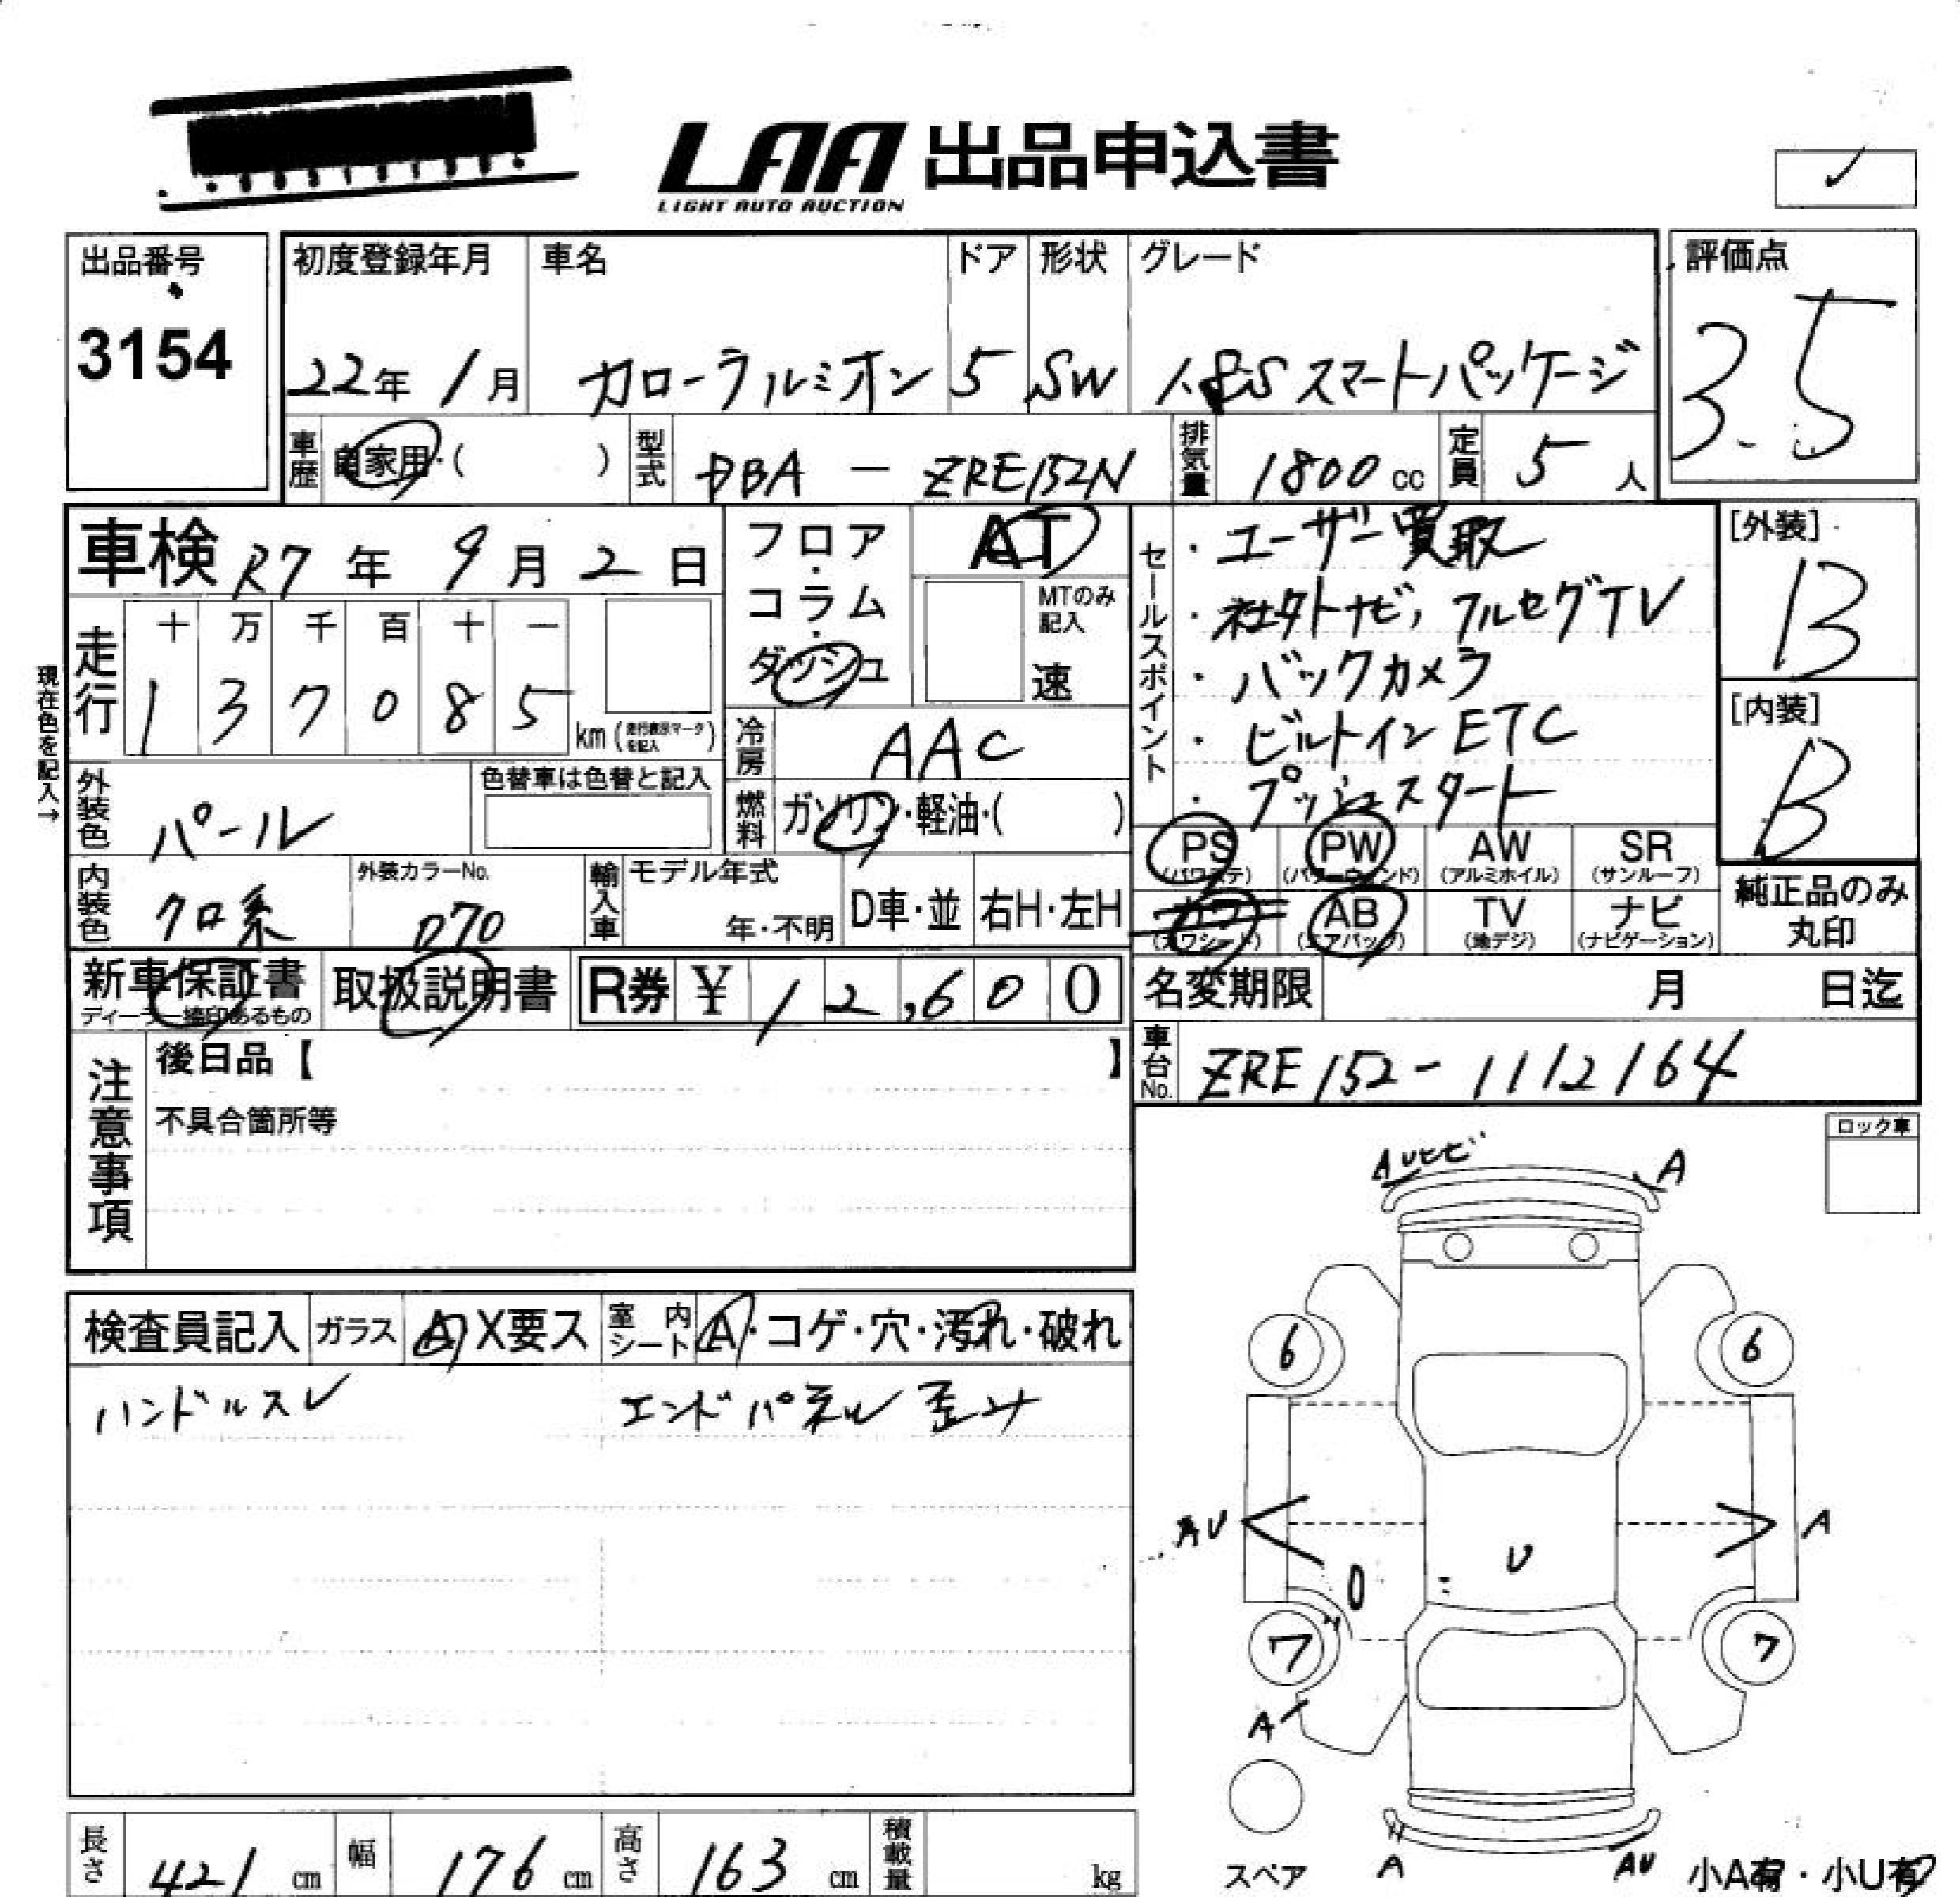 LAA 出品申込書
LIGHT AUTO AUCTION
出品番号
3154
初度登録年月 車名 ドア 形状 グレード
22年 1月 カローラルミオン 5 SW 1.8S スマートパッケージ
評価点
3.5
車歴 自家用・( ) 型式 DBA - ZRE152N 排気量 1800cc 定員 5人
車検 R7年 9月 2日
フロア・コラム・ダッシュ
AT
MTのみ記入
速
セールスポイント
・ユーザー買取
・社外ナビ, フルセグTV
・バックカメラ
・ビルトインETC
・プッシュスタート
[外装]
B
[内装]
B
現在色を記入→
走行 十 万 千 百 十 一
1 3 7 0 8 5 km (走行表示マークを記入)
冷房 AAC
外装色 パール 色替車は色替と記入
燃料 ガソリン・軽油・( )
PS (パワステ) PW (パワーウィンド) AW (アルミホイル) SR (サンルーフ)
カワ (カワシート) AB (エアバッグ) TV (地デジ) ナビ (ナビゲーション)
純正品のみ丸印
内装色 クロ系 外装カラーNo. 070 輸入車 モデル年式 年・不明 D車・並 右H・左H
新車保証書 取扱説明書 R券 ¥ 12,600
ディーラー捺印あるもの
名変期限 月 日迄
車台No. ZRE152-1112164
注意事項
後日品【 】
不具合箇所等
ロック車
検査員記入 ガラス A X要ス 室内シート A・コゲ・穴・汚れ・破れ
ハンドルスレ エンドパネル歪み
AUヒビ A
6 6
AU A
U
7 7
A
A AU
スペア
小A有・小U有
長さ 421cm 幅 176cm 高さ 163cm 積載量 kg